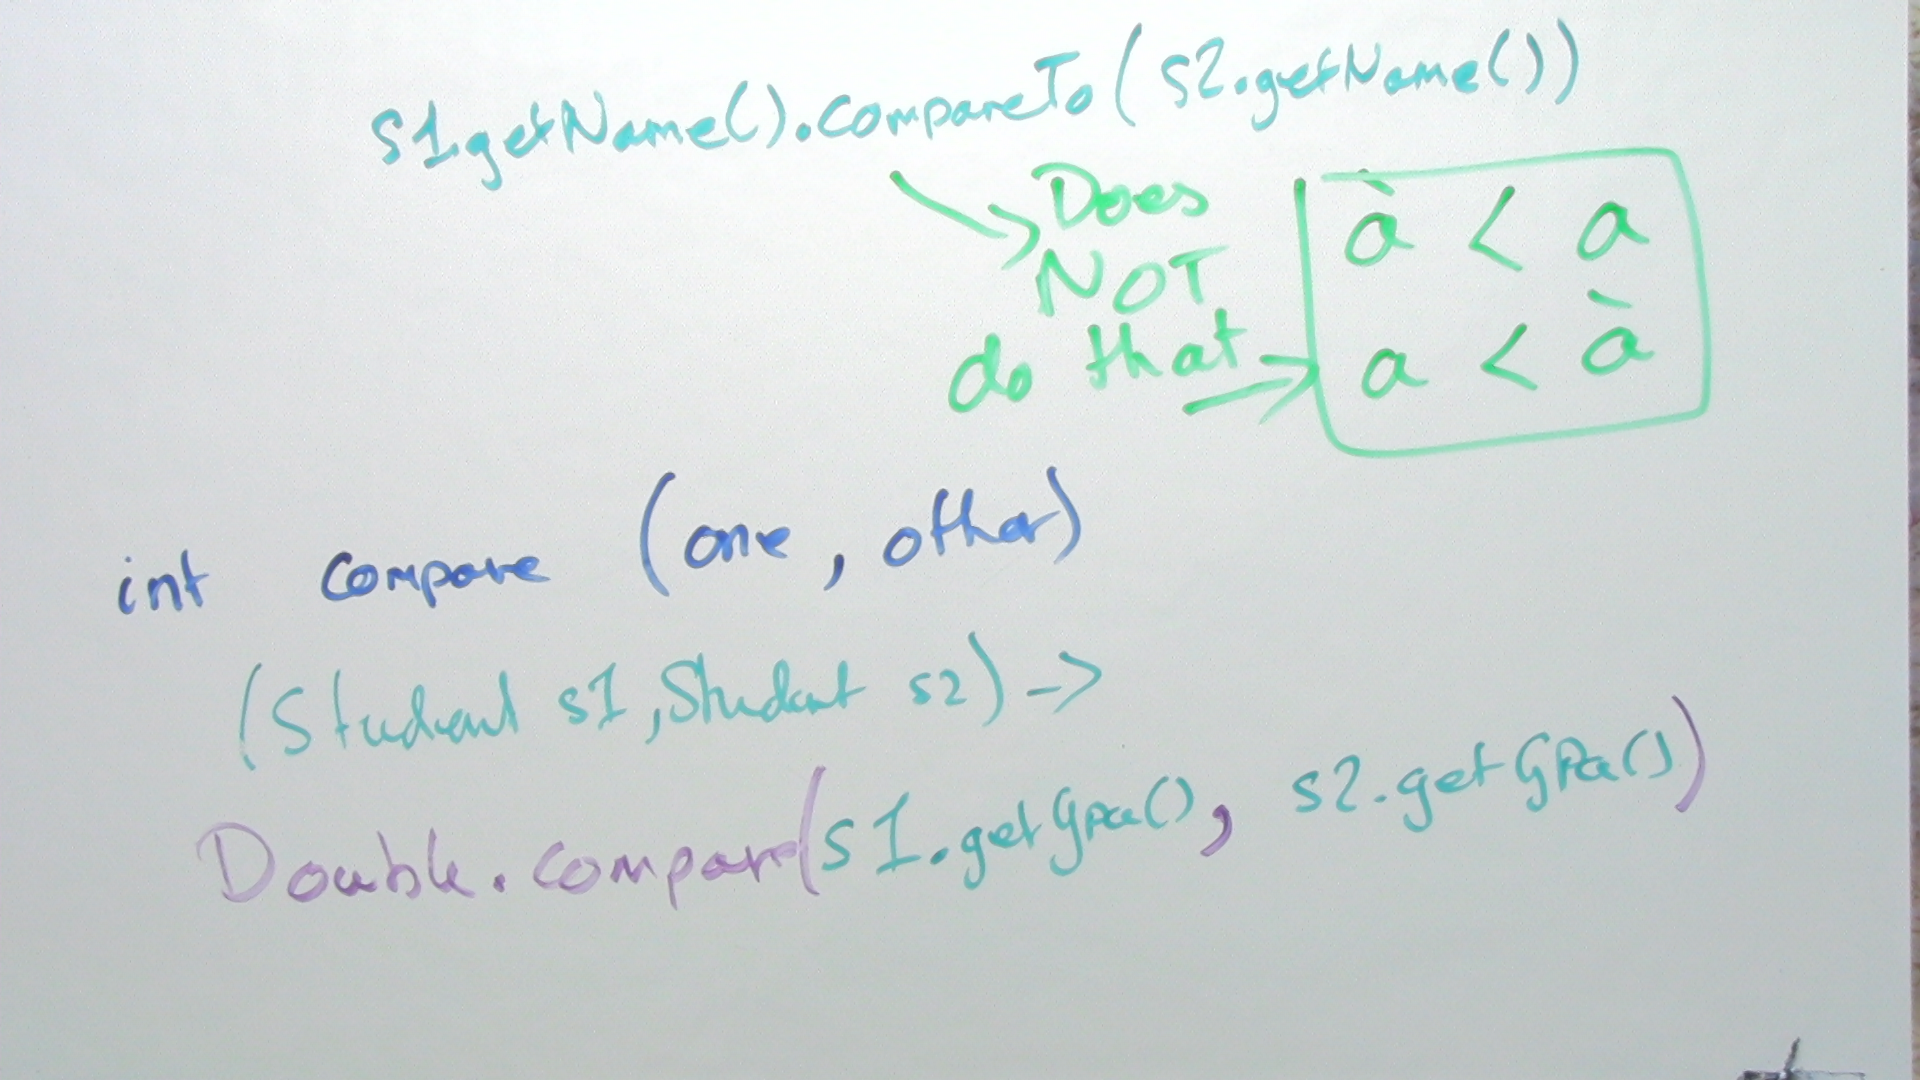 s1.getName().compareTo(s2.getName())
Does
NOT
do that
à < a
a < à
int compare (one, other)
(Student s1, Student s2) ->
Double.compare(s1.getGpa(), s2.getGpa())